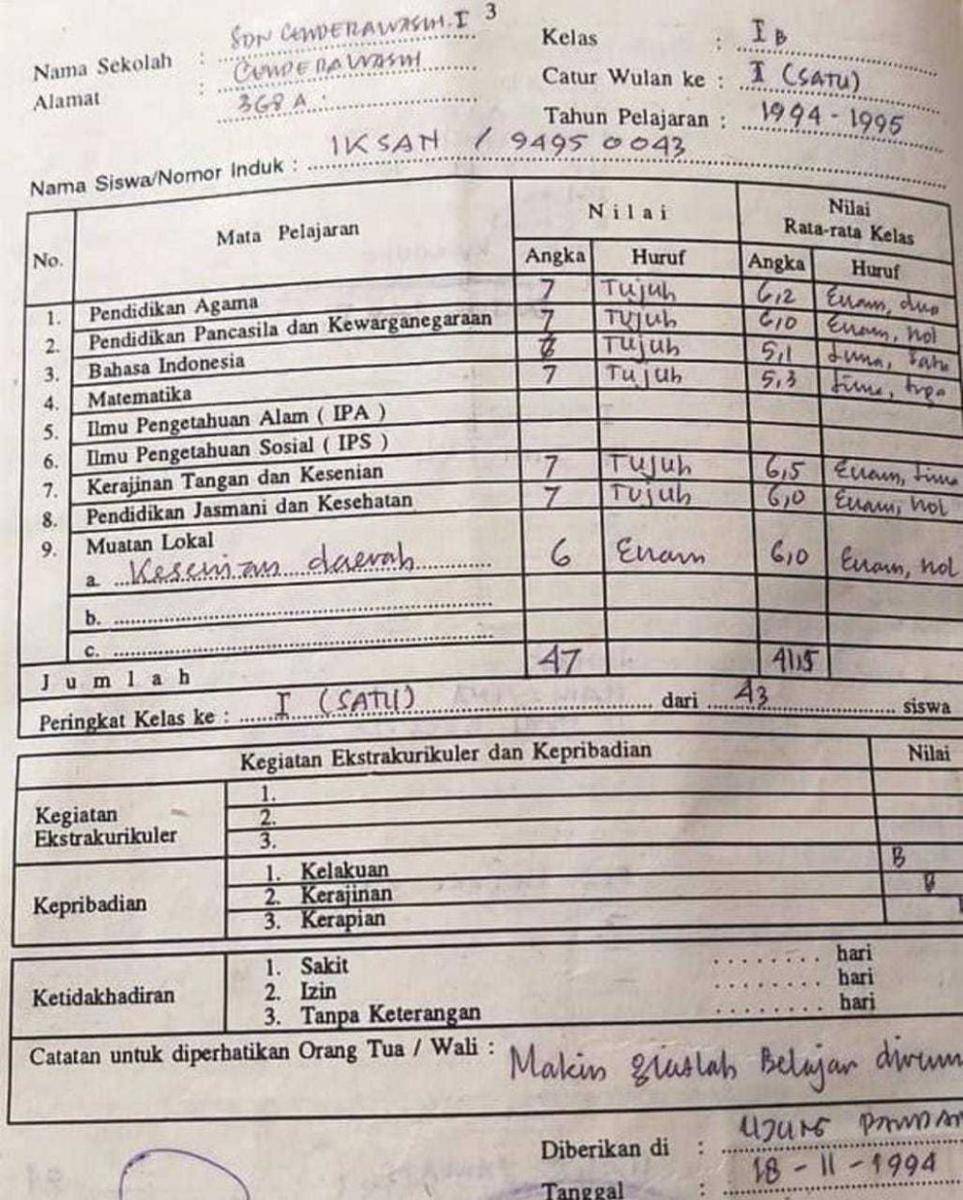 Nama Sekolah : SDN CENDERAWASIH.I 3
Alamat : CENDERAWASIH
368 A.
Kelas : I B
Catur Wulan ke : I (SATU)
Tahun Pelajaran : 1994 - 1995
Nama Siswa/Nomor Induk : IKSAN / 9495 0043
No. Mata Pelajaran Nilai Nilai Rata-rata Kelas
Angka Huruf Angka Huruf
1. Pendidikan Agama 7 Tujuh 6,2 Enam, dua
2. Pendidikan Pancasila dan Kewarganegaraan 7 Tujuh 6,0 Enam, nol
3. Bahasa Indonesia Tujuh 5,1 Lima, satu
4. Matematika 7 Tujuh 5,3 Lima, tiga
5. Ilmu Pengetahuan Alam ( IPA )
6. Ilmu Pengetahuan Sosial ( IPS )
7. Kerajinan Tangan dan Kesenian 7 Tujuh 6,5 Enam, lima
8. Pendidikan Jasmani dan Kesehatan 7 Tujuh 6,0 Enam, nol
9. Muatan Lokal
a. Kesenian daerah 6 Enam 6,0 Enam, nol
b.
c.
Jumlah 47 41,5
Peringkat Kelas ke : I (SATU) dari 43 siswa
Kegiatan Ekstrakurikuler dan Kepribadian Nilai
Kegiatan Ekstrakurikuler
1.
2.
3.
Kepribadian
1. Kelakuan B
2. Kerajinan B
3. Kerapian
Ketidakhadiran
1. Sakit ........ hari
2. Izin ........ hari
3. Tanpa Keterangan ........ hari
Catatan untuk diperhatikan Orang Tua / Wali : Makin giatlah Belajar dirum
Diberikan di : UJUNG PANDAN
Tanggal : 18 - 11 - 1994